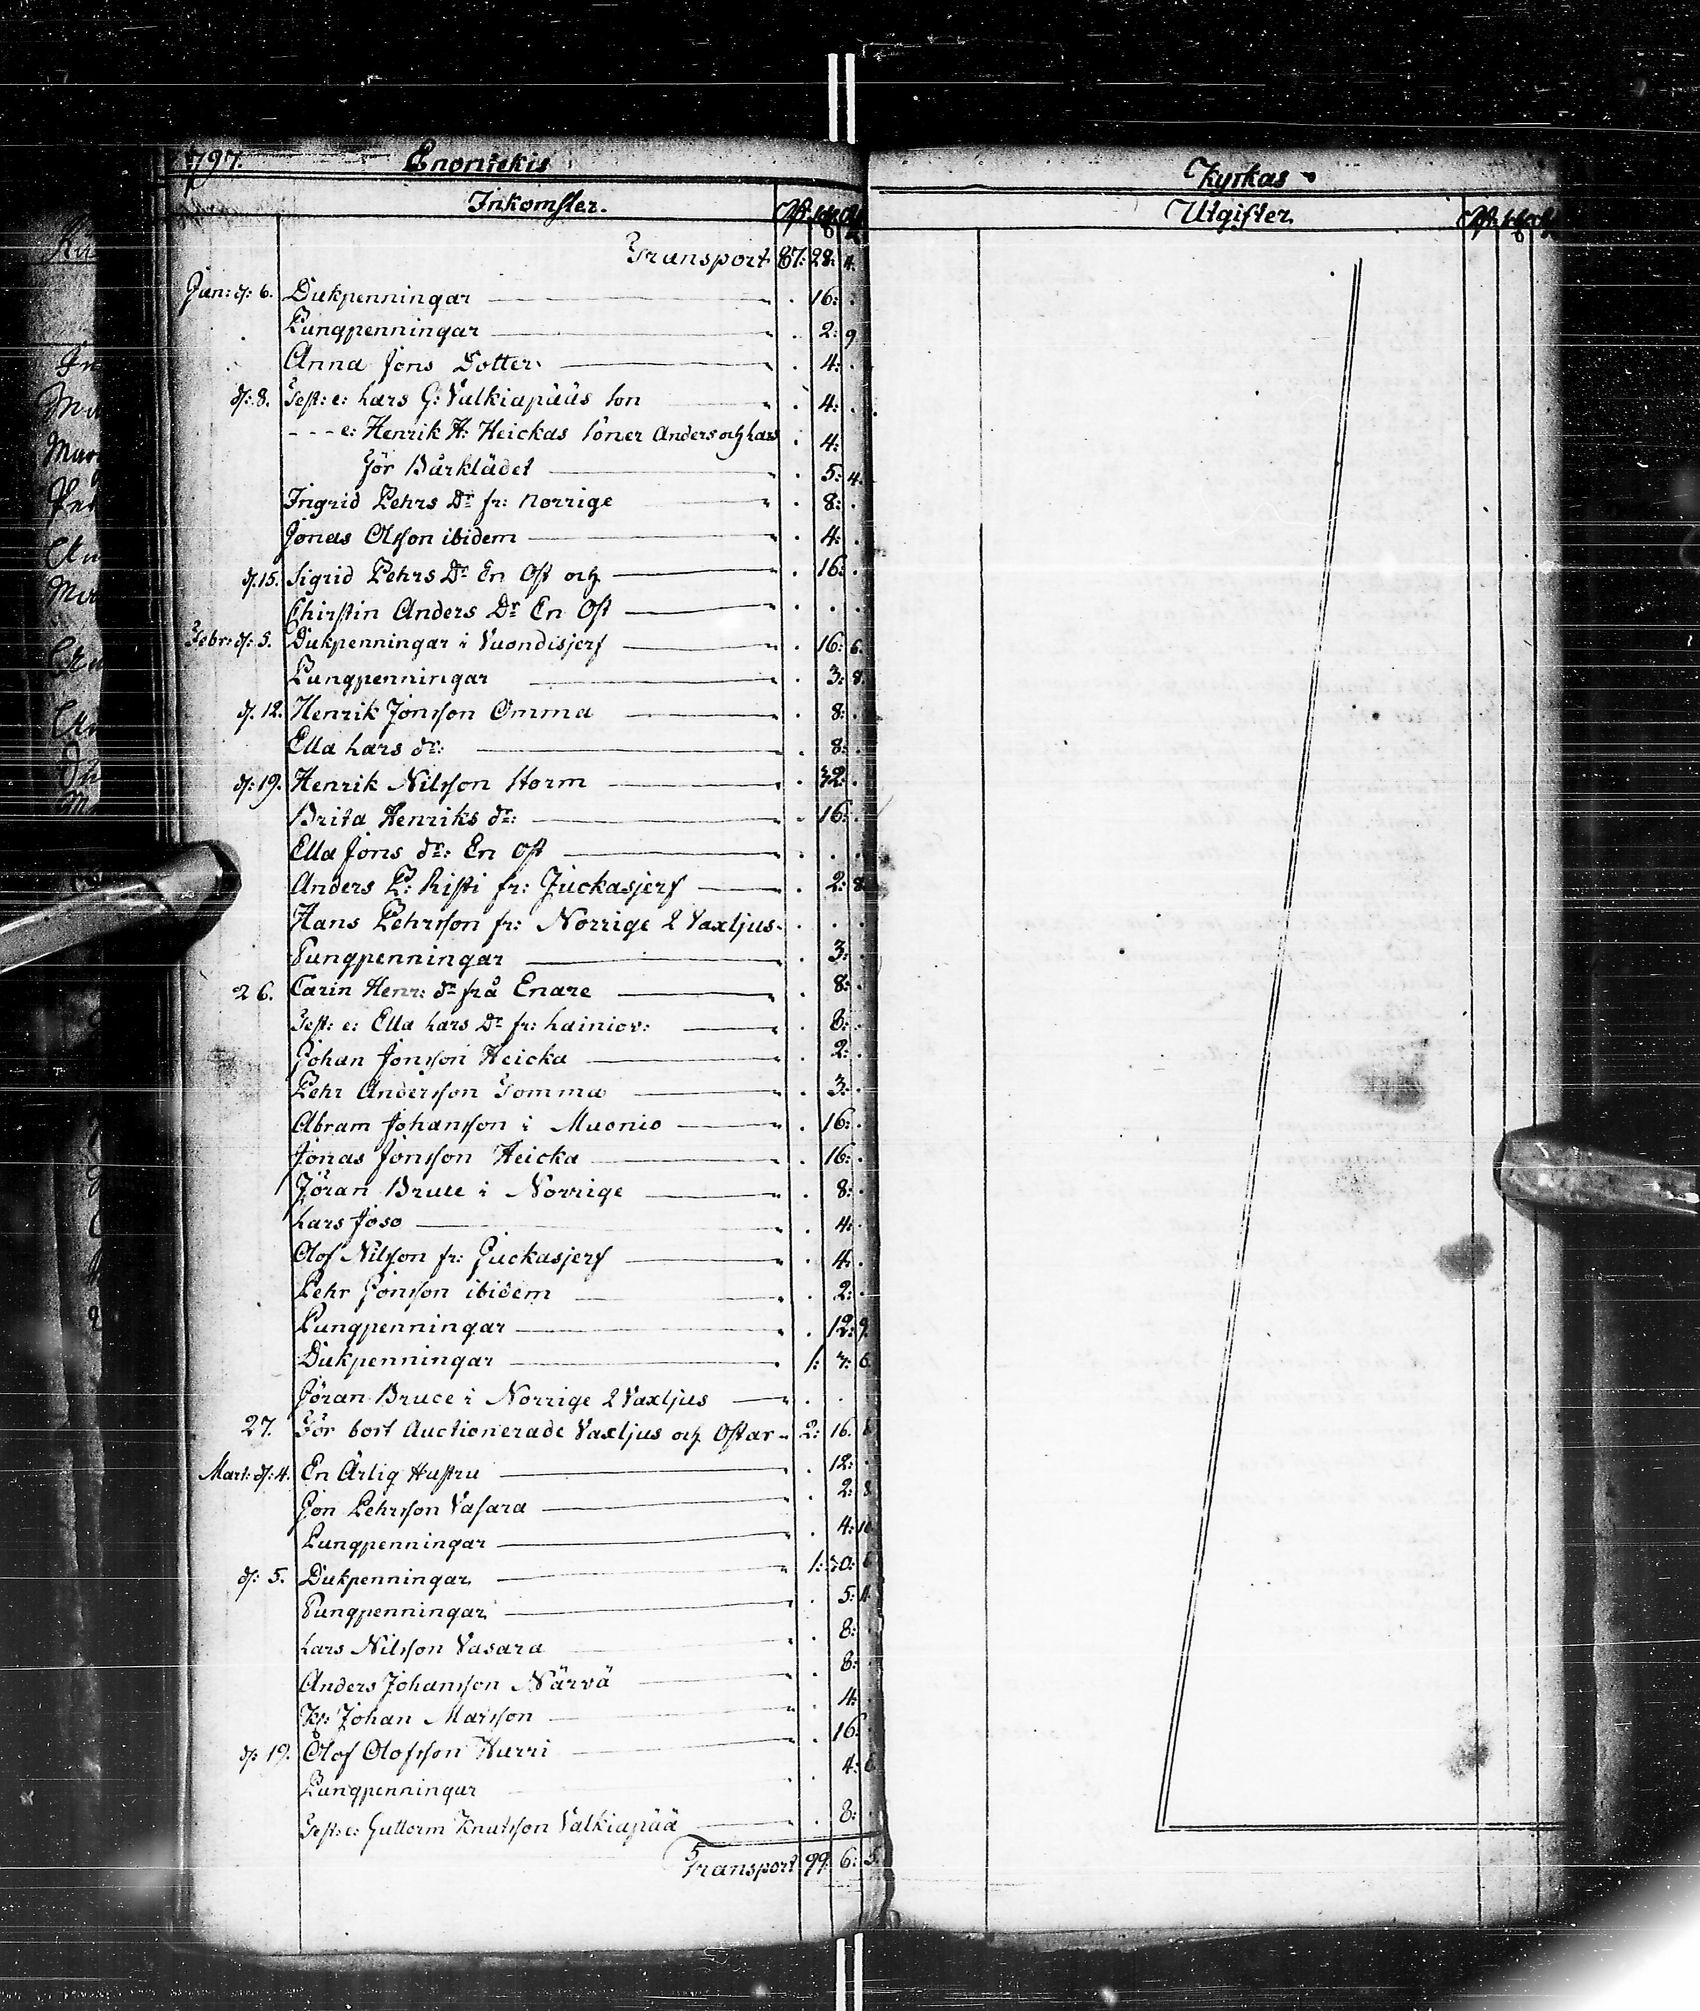 1797. Enontekis
Inkomster.
Transport 87: 28: 4.
Jan: d: 6. Dukpenningar . 16: .
Pungpenningar . 2: 9
Anna Jöns Dotter . 4: .
d: 8. Test: e: Lars G: Valkiapääs Son . 4: .
- - - e: Henrik H: Heickas Söner Anders och Lars . 4:
För Bårklädet . 5: 4.
Ingrid Pehrs Dr fr: Norrige . 8: .
Jonas Olsson ibidem . 4: .
d. 15. Sigrid Pehrs Dr En Ost och . 16: .
Chirstin Anders Dr En Ost . . .
Febr: d: 5. Dukpenningar i Vuondisjerf . 16: 6.
Pungpenningar . 3: 8.
d. 12. Henrik Jonsson Omma . 8: .
Ella Lars dr: . 8: .
d: 19. Henrik Nilsson Storm . 32: .
Brita Henriks dr: . 16: .
Ella Jöns dr: En Ost . . .
Anders P: Risti fr: Juckasjerf . 2: 8.
Hans Pehrsson fr: Norrige 2 Vaxljus . . .
Pungpenningar . 3: .
26. Carin Henr: dr frå Enare . 8: .
Test: e: Ella Lars Dr fr: Lainiov: . 8: .
Johan Jonsson Heicka . 2: .
Pehr Andersson Tomma . 3: .
Abram Johansson i Muonio . 16: .
Jonas Jonsson Heicka . 16: .
Jöran Bruce i Norrige . 8: .
Lars Joso . 4: .
Olof Nilsson fr: Juckasjerf . 4. .
Pehr Jonsson ibidem . 2: .
Pungpenningar . 12: 9.
Dukpenningar 1: 3: 6.
Jöran Bruce i Norrige 2 Vaxljus . .
27. För bort Auctionerade Vaxljus och Ostar 2: 16. 6
Mart: d: 4. En Ärlig Hustru . 12: .
Jon Pehrsson Vasara . 2: 8
Pungpenningar . 4: 10
d: 5. Dukpenningar 1: 30: 6
Pungpenningar . 5: 4
Lars Nilsson Vasara . 8: .
Anders Johansson Närvä . 8: .
Johan Marsson . 4: .
d: 19. Olof Olofsson Hurri . 16: .
Pungpenningar . 4: 6
Test: e: Guttorm Knutsson Valkiapää . 8: .
Transport 99. 6: 5.
Kyrkas
Utgifter